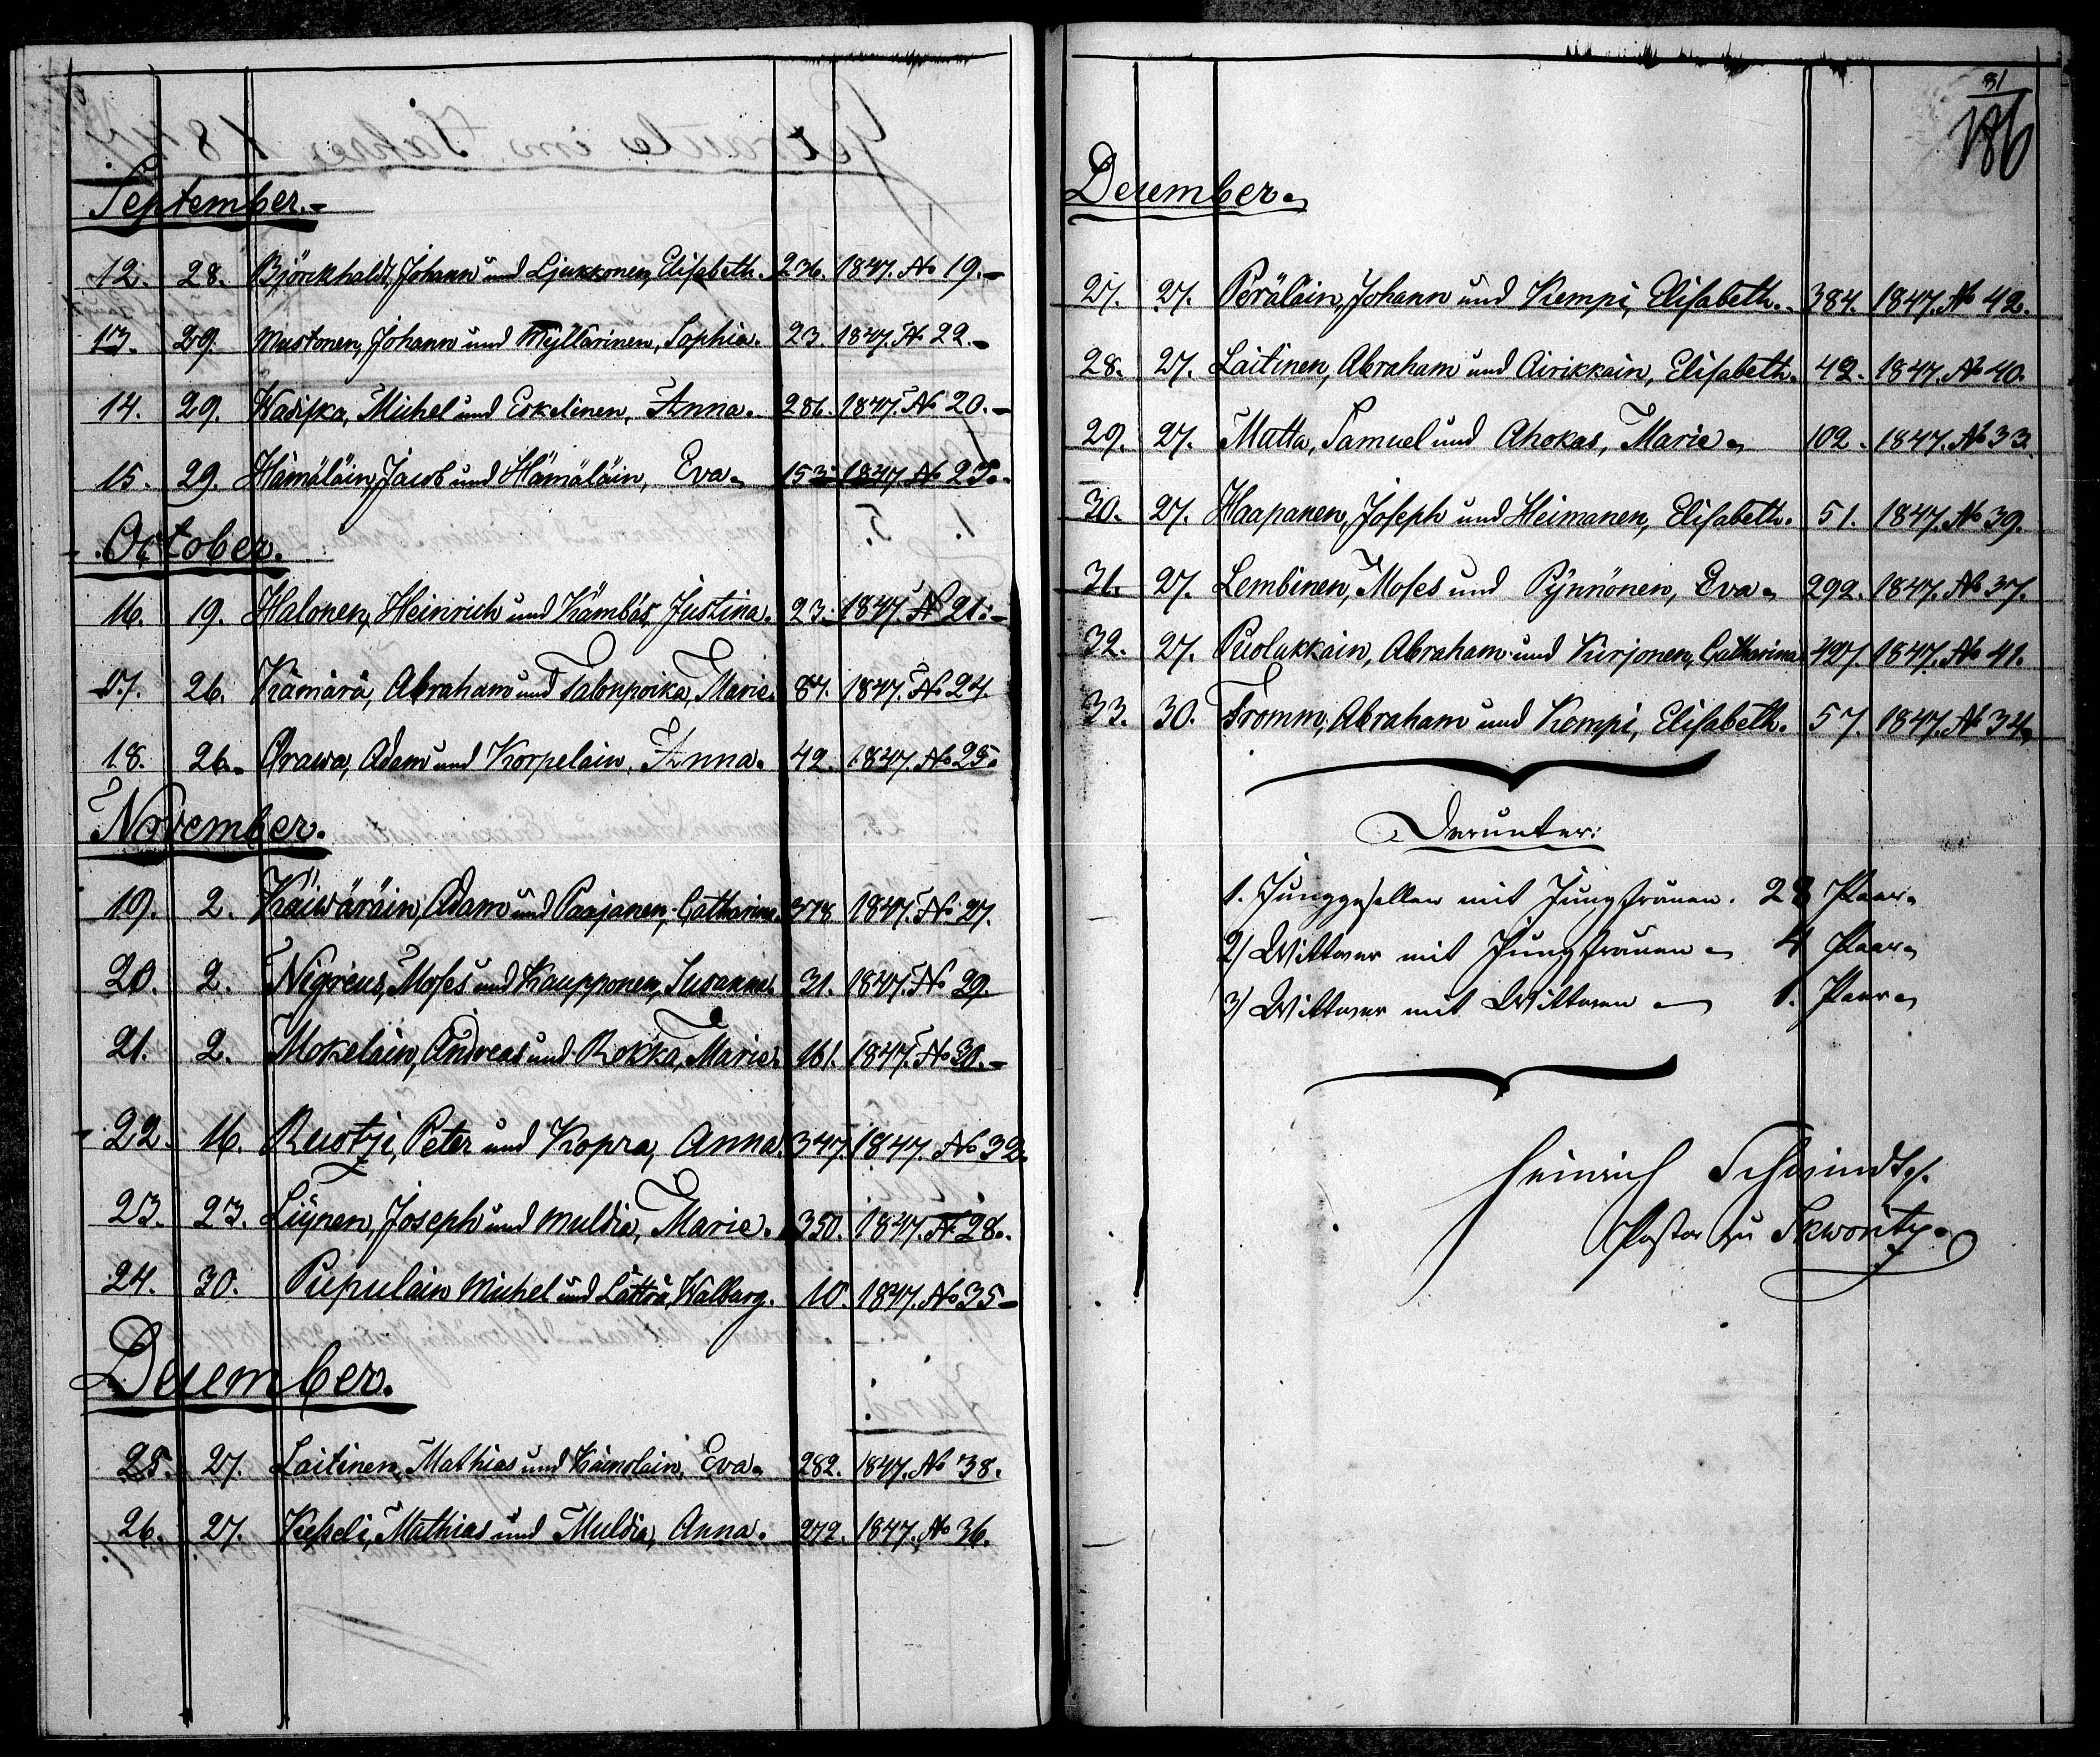 September.-
12. 28. Björckhaldt, Johann und Ljukkonen, Elisabeth. 236. 1847. No 19.-
13. 29. Mustonen, Johann und Myllärinen, Sophia. 23. 1847. No 22.-
14. 29. Wadiska, Michel und Eskelinen, Anna. 286. 1847. No 20.-
15. 29. Hämäläin, Jacob und Hämäläin, Eva. 153. 1847. No 23.
October.
16. 19. Halonen, Heinrich und Kämbäs, Justina. 23. 1847. No 21.-
17. 26. Kämärä, Abraham und Talonpoika, Marie. 87. 1847. No 24.
18. 26. Orawa, Adam und Korpelain, Anna. 42. 1847. No 25.
November.
19. 2. Käiwäräin, Adam und Paajanen, Catharina. 378 1847. No 27.
20. 2. Nigreus, Moses und Kaupponen, Susanna. 31. 1847. No 29.
21. 2. Mokelain, Andreas und Rokka, Marie. 161. 1847. No 30.-
22. 16. Ruotzi, Peter und Kopra, Anna. 347. 1847. No 32.
23. 23. Liynen, Joseph und Muldia, Marie. 350. 1847. No 28.
24. 30. Pupulain Michel und Lätträ, Walbarg. 10. 1847. No 35-
December.
25. 27. Laitinen, Mathias und Käinolain, Eva. 282. 1847. No 38.
26. 27. Kesseli, Mathias und Muldia, Anna. 272. 1847. No 36.
31
186
December.
27. 27. Peräläin, Johann und Kempi, Elisabeth. 384. 1847. No 42.
28. 27. Laitinen, Abraham und Airikkain, Elisabeth. 42. 1847. No 40.
29. 27. Matta, Samuel und Ahokas, Marie. 102. 1847. No 33.
30. 27. Haapanen, Joseph und Heimanen, Elisabeth. 51. 1847. No 39.
31. 27. Lembinen, Moses und Pynnönen, Eva. 292. 1847. No 37.
32. 27. Puolakkain, Abraham und Kurjonen, Catharina 427. 1847. No 41.
33. 30. Fromm, Abraham und Kempi, Elisabeth. 57. 1847. No 34.
Darunter:
1. Junggesellen mit Jungfrauen. 28 Paar.
2) Wittwer mit Jungfrauen - 4 Paar.
3) Wittwer mit Wittwen - 1. Paar.
Heinrich Schwindt
Pastor zu Skworitz.